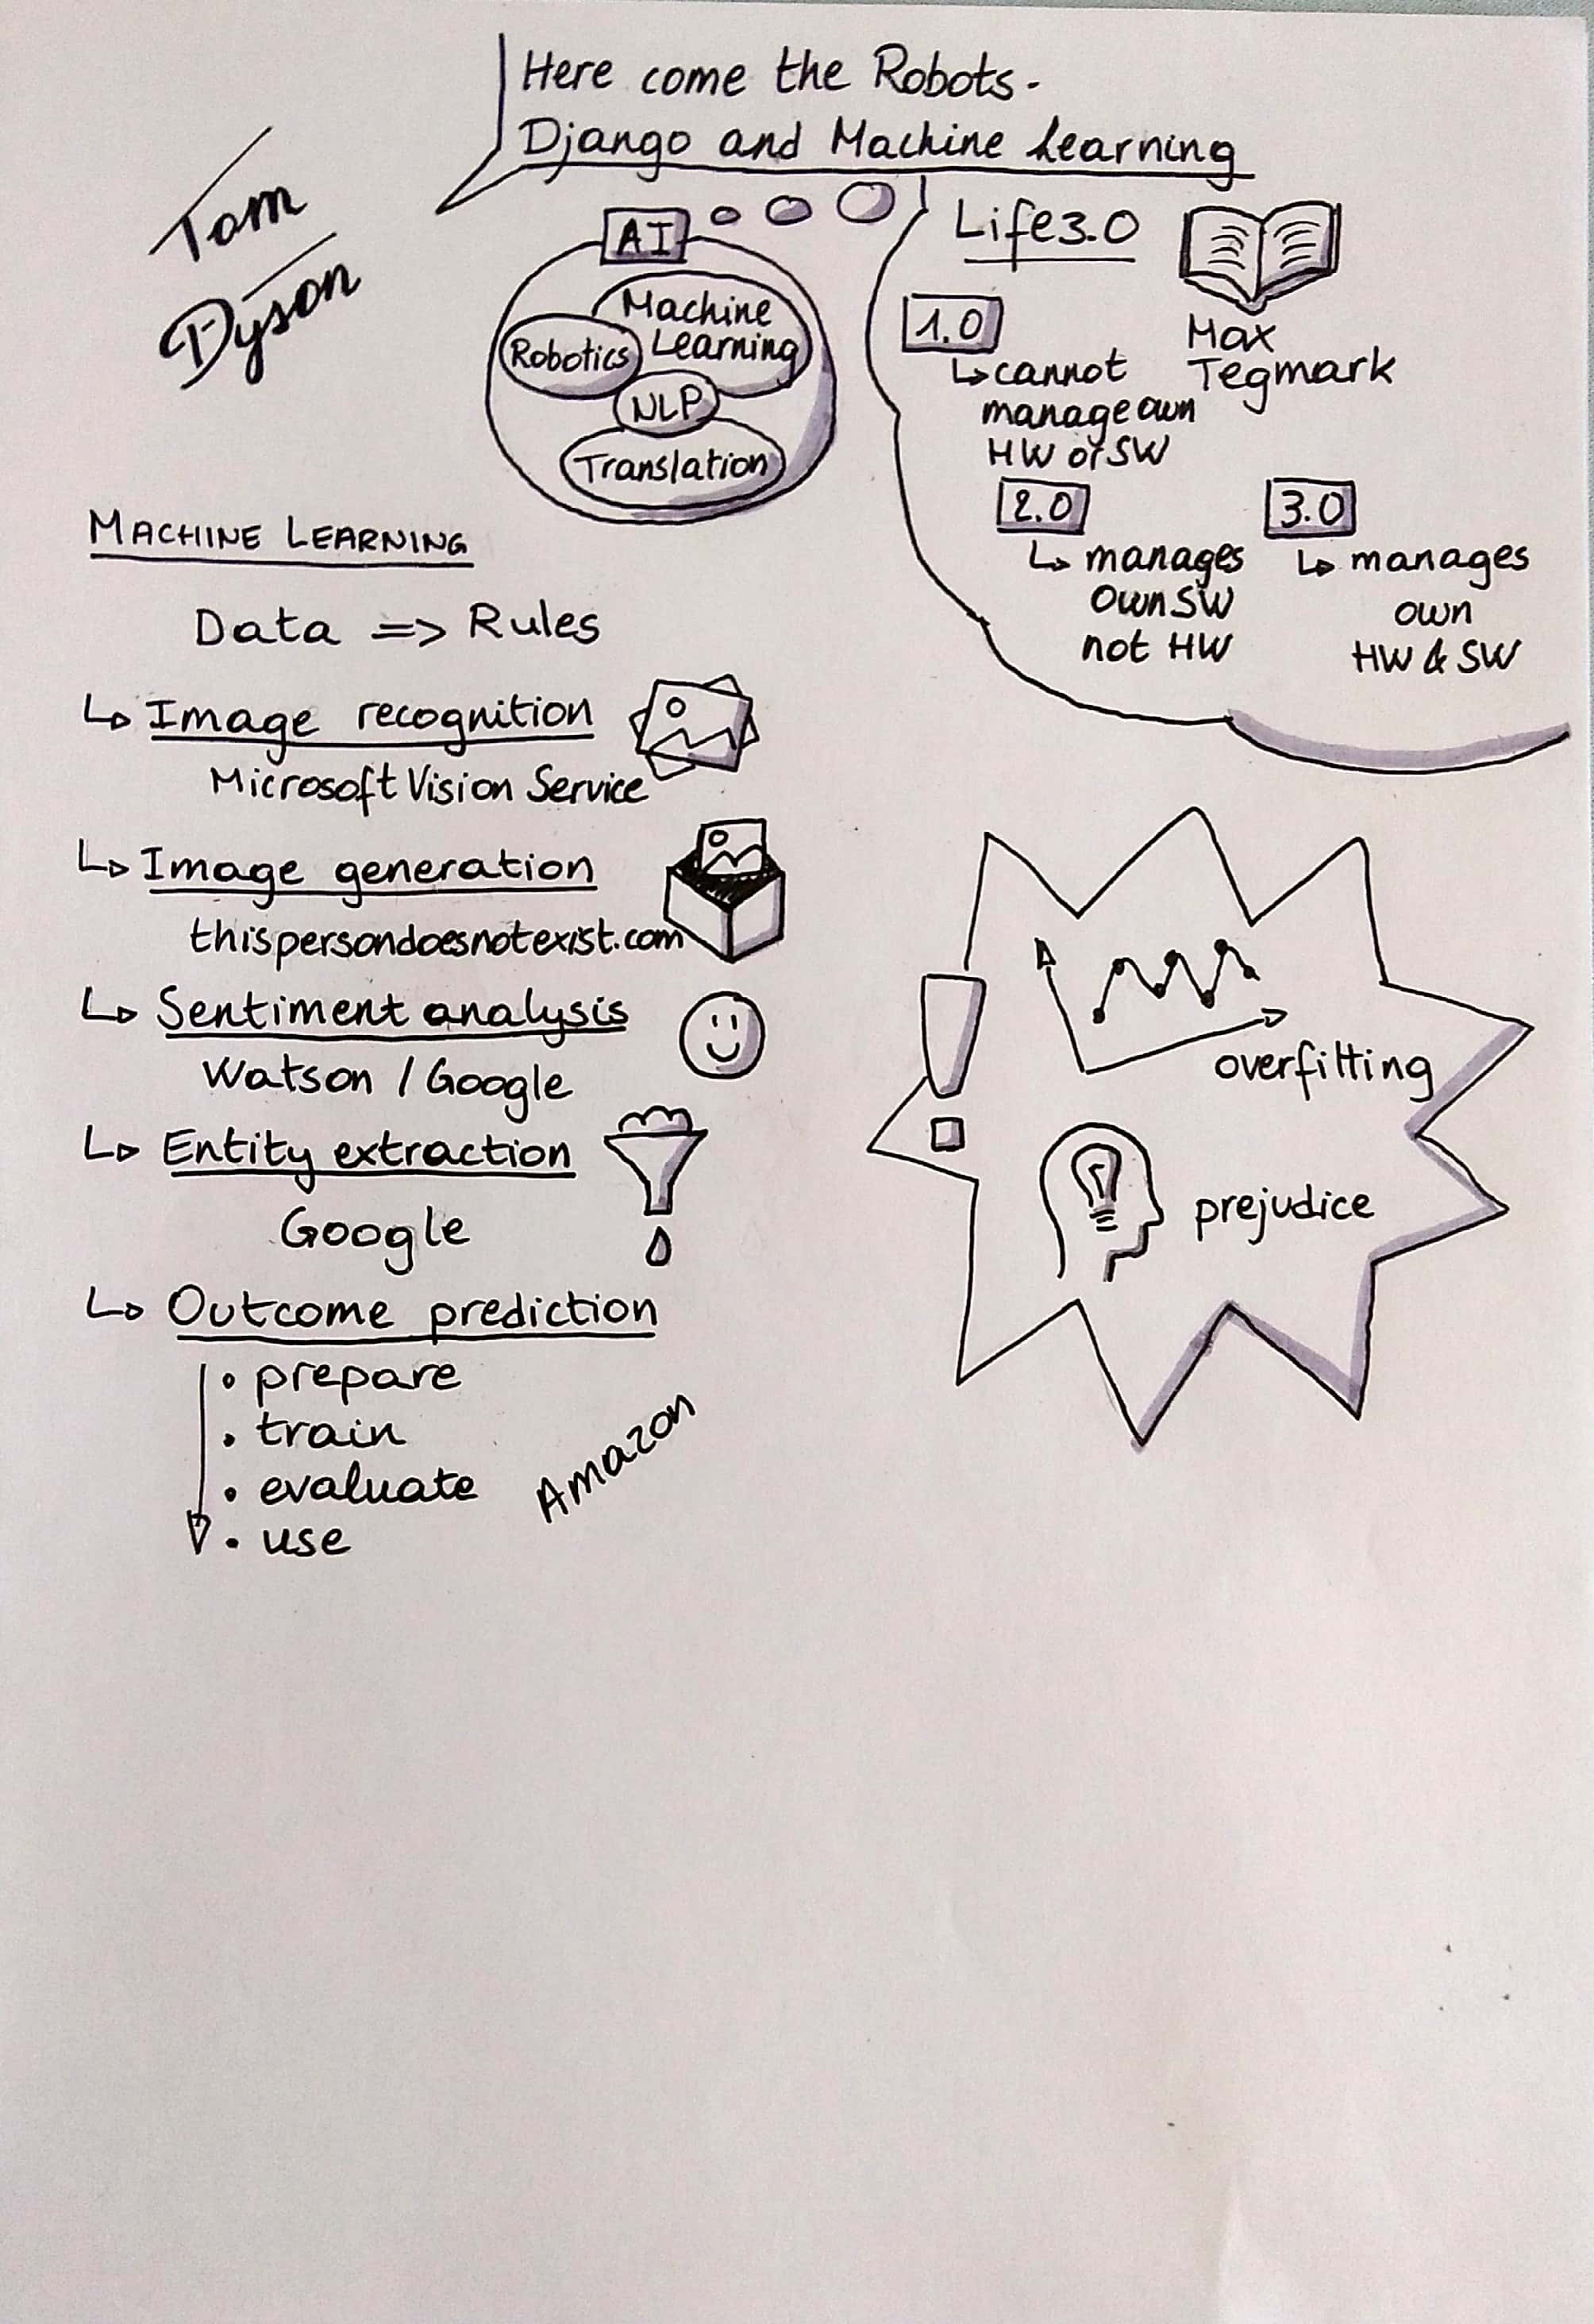 Here come the Robots -
Django and Machine Learning
Tom
Dyson
AI
Machine
Learning
Robotics
NLP
Translation
Life 3.0
Max
Tegmark
1.0
cannot
manage own
HW or SW
2.0
manages
own SW
not HW
3.0
manages
own
HW & SW
MACHINE LEARNING
Data => Rules
Image recognition
Microsoft Vision Service
Image generation
thispersondoesnotexist.com
Sentiment analysis
Watson / Google
Entity extraction
Google
Outcome prediction
• prepare
• train
• evaluate
• use
Amazon
!
overfitting
prejudice